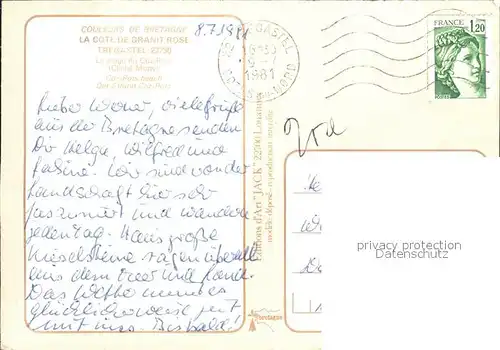 COULEURS DE BRETAGNE
LA COTE DE GRANIT ROSE
TREGASTEL 22730
La plage du Coz-Pors
(Cliché Moëlo)
Coz-Pors beach
Der Strand Coz-Pors
8.7.1981
Lieber Werner, viele Grüße
aus der Bretagne senden
Dir Helga, Wilfried und
Sabine. Wir sind von der
Landschaft hier sehr
fasziniert und wandern
jeden Tag. große
Kieselsteine ragen überall
aus dem Meer und Land.
Das Wetter
glücklicherweise gut
mit uns. Bis bald!
TREGASTEL
9-7
1981
COTES DU NORD
FRANCE
1,20
Editions d'Art "JACK" 22200 Louannec
modèle déposé - reproduction interdite
bretagne
privacy protection
Datenschutz